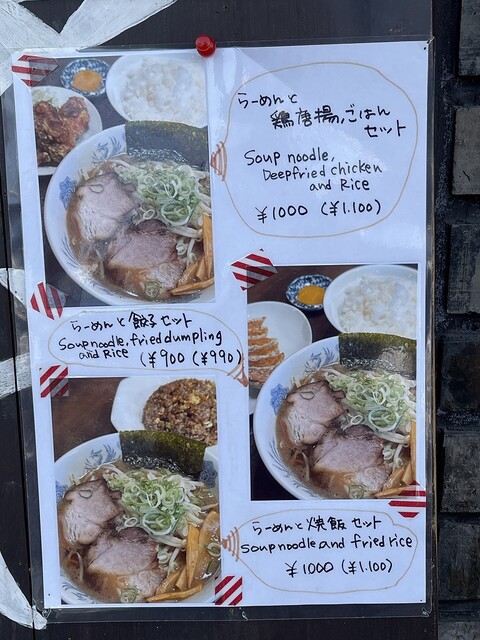 らーめんと
鶏唐揚，ごはん
セット
Soup noodle,
Deepfried chicken
and Rice
¥1000 (¥1.100)
らーめんと餃子セット
Soup noodle, fried dumpling
and Rice (¥900 (¥990)
らーめんと焼飯セット
Soup noodle and fried rice
¥1000 (¥1.100)